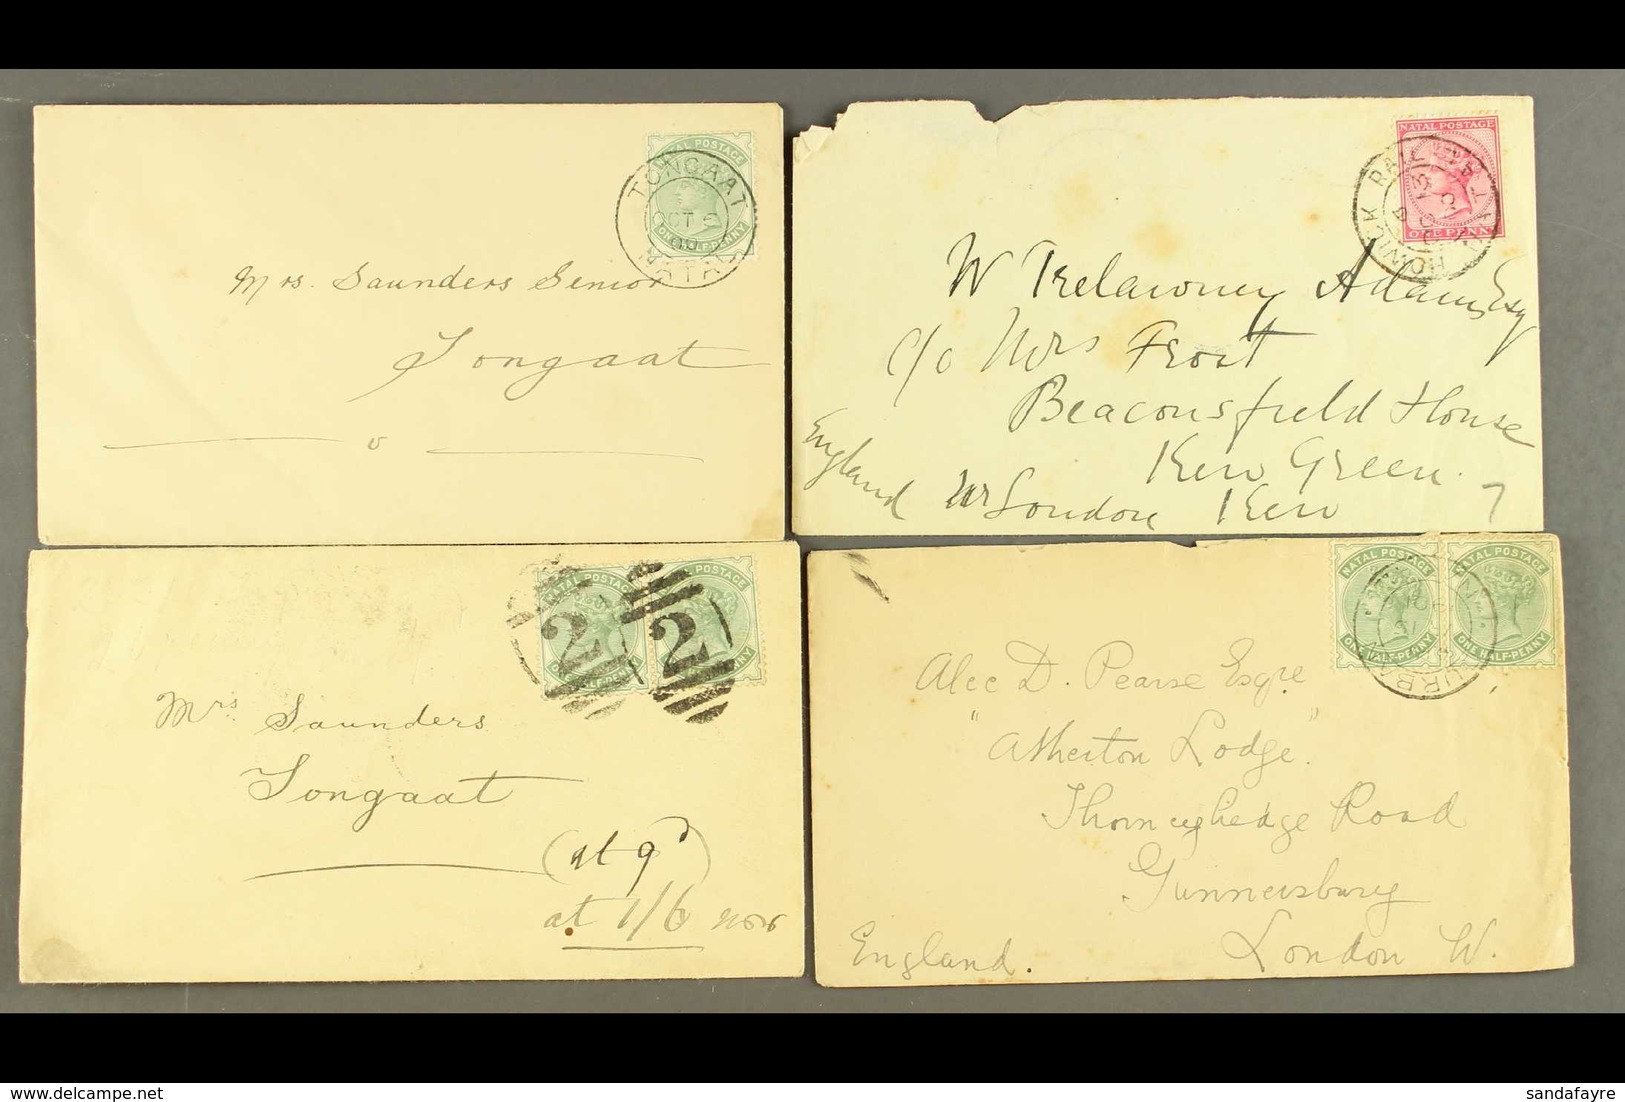 NATAL POSTAGE
ONE HALF-PENNY
TONGAAT
OCT 6
NATAL
Mrs. Saunders Senior
Tongaat
NATAL POSTAGE
ONE PENNY
HOWICK RAIL
W Trelawney Adams Esq
c/o Mrs Frost
Beaconsfield House
Kew Green
England nr London Kew 7
NATAL POSTAGE POSTAGE
ONE HALF-PENNY
2 2
Mrs Saunders
Tongaat
(at 9d)
at 1/6 now
NATAL POSTAGE NATAL POSTAGE
ONE HALF-PENNY ONE HALF-PENNY
DURBAN
Alec D. Pearse Esqre
"Atherton Lodge"
Thorneyhedge Road
Gunnersbury
England. London W.
sandafayre